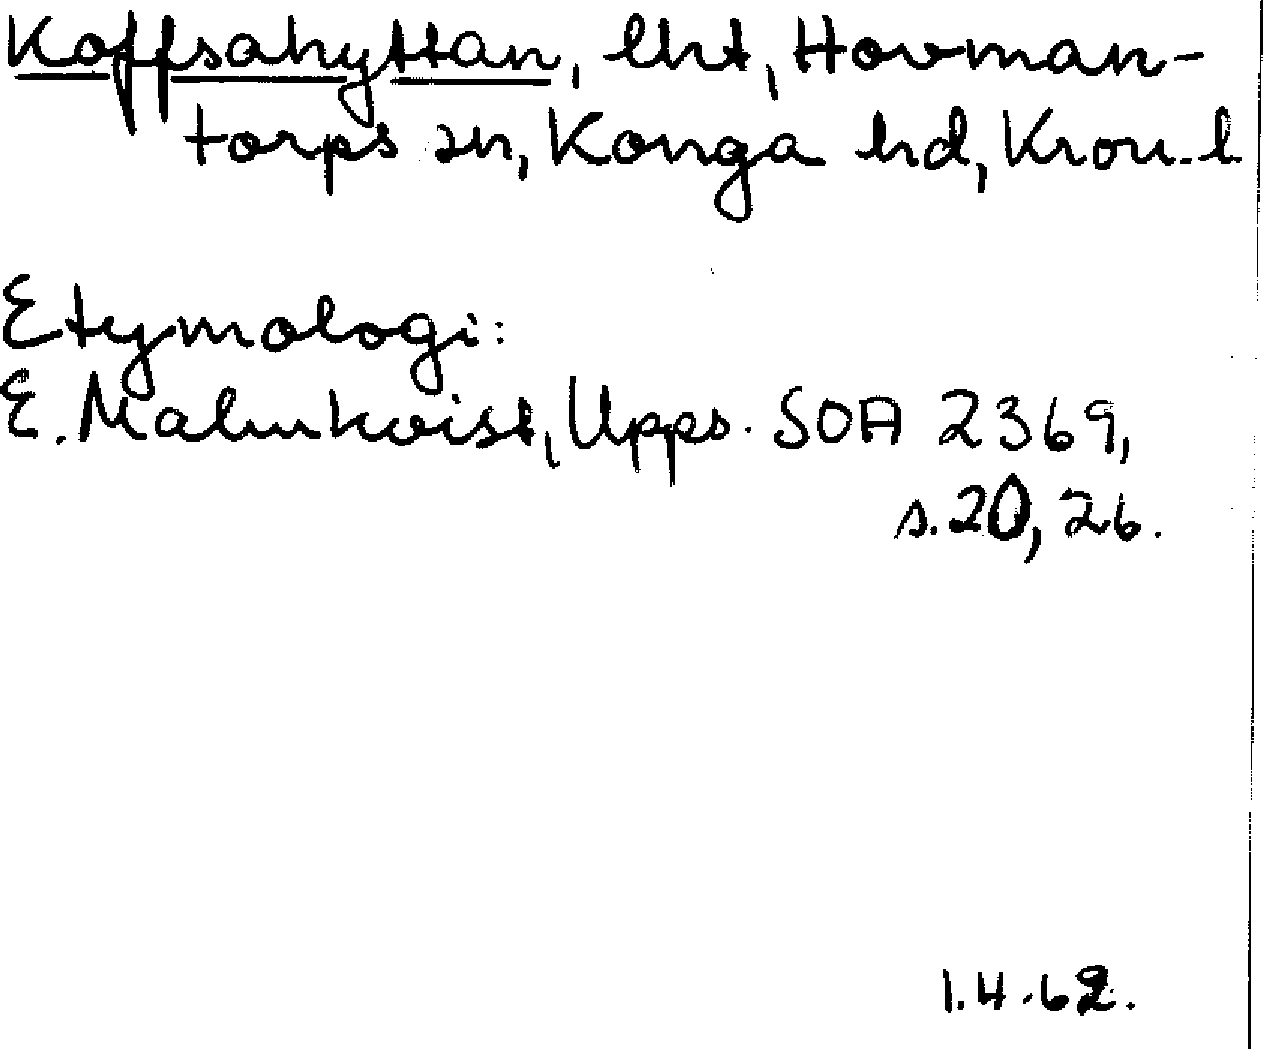 Koffsahyttan, lht, Hovman-
torps sn, Konga hd, Kron. l
Etymologi:
E. Malmkvist, Upps. SOA 2369,
s. 20, 26.
1.4.62.